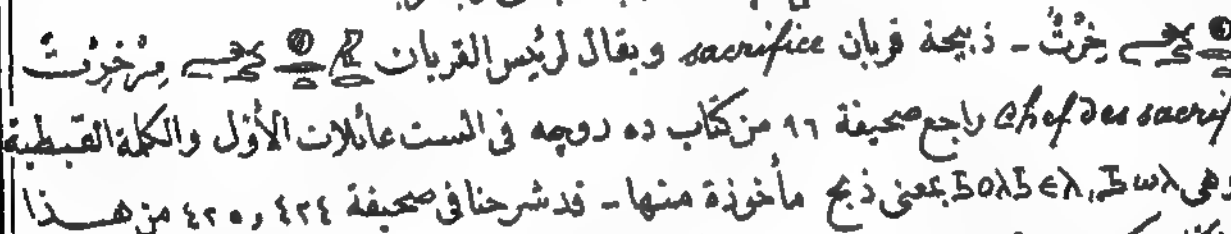 خِرْتْ - ذبيحة قربان sacrifice ويقال لرئيس القربان مِرْخِرْتْ
chef des sacrif راجع صحيفة ٩٦ من كتاب ده روچه فى الست عائلات الأول والكلمة القبطية
وهى ϧⲱⲗ, ϧⲟⲗϧⲉⲗ بمعنى ذبح مأخوذة منها - قد شرحنا فى صحيفة ٤٢٤ و ٤٢٥ من هذا